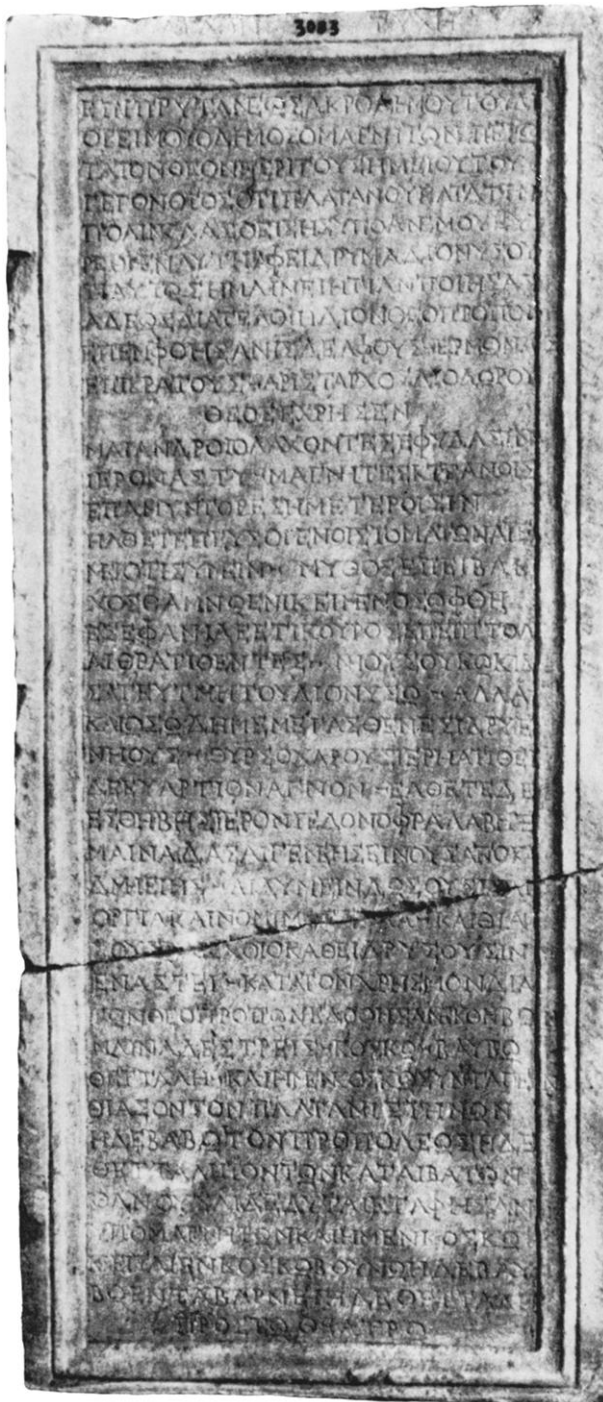 3083
ΕΠΙ ΠΡΥΤΑΝΕΩΣ ΑΚΡΟΔΗΜΟΥ ΤΟΥ ΔΙ
Ο ΔΗΜΟΣ Ο ΜΑΓΝΗΤΩΝ
ΤΟΝ ΘΕΟΝ ΣΗΜΕΙΟΥ ΤΟΥ
ΓΕΓΟΝΟΤΟΣ ΟΤΙ ΠΛΑΤΑΝΟΥ ΚΑΤΑ ΤΗΝ
ΠΟΛΙΝ ΚΛΑΣΘΕΙΣΗΣ ΥΠΟ ΑΝΕΜΟΥ ΕΥ
ΡΕΘΗ ΕΝ ΑΥΤΗ ΑΦΕΙΔΡΥΜΑ ΔΙΟΝΥΣΟΥ
ΑΥΤΩ ΣΗΜΑΙΝΕΙ
ΑΔΕΩΣ ΔΙΑΤΕΛΟΙΗ ΔΙΟ
ΕΠΕΝΦΘΗΣΑΝ ΙΣ ΔΕΛΦΟΥΣ ΕΡΜΩΝΑΞ
ΕΠΙΚΡΑΤΟΥΣ ΑΡΙΣΤΑΡΧΟΣ ΔΙΟΔΩΡΟΥ
ΘΕΟΣ ΕΧΡΗΣΕΝ
ΜΑΙΑΝΔΡΟΙΟ ΛΑΧΟΝΤΕΣ ΕΦ ΥΔΑΣΙΝ
ΙΕΡΟΝ ΑΣΤΥ ΜΑΓΝΗΤΕΣ ΚΤΕΑΝΟΙΣ
ΕΠΑΜΥΝΤΟΡΕΣ ΗΜΕΤΕΡΟΙΣΙΝ
ΗΛΘΕΤΕ ΠΕΥΣΟΜΕΝΟΙ ΣΤΟΜΑΤΩΝ ΑΠ Ε
ΜΕΙΟ ΤΙΣ ΥΜΕΙΝ ΜΥΘΟΣ ΕΠΕΙ ΒΑΚ
ΧΟΣ ΘΑΜΝΩ ΕΝΙ ΚΕΙΜΕΝΟΣ ΩΦΘΗ
ΕΞΕΦΑΝΗ ΔΕ ΕΤΙ ΚΟΥΡΟΣ ΕΠΕΙ ΠΤΟΛΙ
ΑΙΘΡΑ ΤΙΘΕΝΤΕΣ ΝΗΟΥΣ ΟΥΚ ΩΚΙΣ
ΣΑΤ ΕΥΤΜΗΤΟΥΣ ΔΙΟΝΥΣΩ ΑΛΛΑ
ΚΑΙ ΩΣ Ω ΔΗΜΕ ΜΕΓΑΣΘΕΝΕΣ ΙΔΡΥΕ
ΝΗΟΥΣ ΘΥΡΣΟΧΑΡΟΥΣ ΙΕΡΗΑ ΤΙΘΕΙ
ΔΕ ΕΥΑΡΤΙΟΝ ΑΓΝΟΝ ΕΛΘΕΤΕ ΔΕ
ΕΣ ΘΗΒΗΣ ΙΕΡΟΝ ΠΕΔΟΝ ΟΦΡΑ ΛΑΒΗΤΕ
ΜΑΙΝΑΔΑΣ ΑΙ ΓΕΝΕΗΣ ΕΙΝΟΥΣ ΑΠΟ ΚΑ
ΔΜΗΕΙΗΣ ΑΙ Δ ΥΜΕΙΝ ΔΩΣΟΥΣΙ ΚΑΙ
ΟΡΓΙΑ ΚΑΙ ΝΟΜΙΜΑ ΕΣΘΛΑ ΚΑΙ ΘΙΑ
ΣΟΥΣ ΒΑΚΧΟΙΟ ΚΑΘΕΙΔΡΥΣΟΥΣΙΝ
ΕΝ ΑΣΤΕΙ ΚΑΤΑ ΤΟΝ ΧΡΗΣΜΟΝ ΔΙΑ
ΤΩΝ ΘΕΟΠΡΟΠΩΝ ΕΔΟΘΗΣΑΝ ΕΚ ΘΗΒΩΝ
ΜΑΙΝΑΔΕΣ ΤΡΕΙΣ ΚΟΣΚΩ ΒΑΥΒΩ
ΘΕΤΤΑΛΗ ΚΑΙ Η ΜΕΝ ΚΟΣΚΩ ΣΥΝΗΓΑΓΕΝ
ΘΙΑΣΟΝ ΤΟΝ ΠΛΑΤΑΝΙΣΤΗΝΩΝ
Η ΔΕ ΒΑΒΩ ΤΟΝ ΠΡΟ ΠΟΛΕΩΣ Η ΔΕ
ΘΕΤΤΑΛΗ ΤΟΝ ΤΩΝ ΚΑΤΑΙΒΑΤΩΝ
ΘΑΝΟΥΣΑΙ ΔΕ ΑΥΤΑΙ ΕΤΑΦΗΣΑΝ
ΥΠΟ ΜΑΓΝΗΤΩΝ ΚΑΙ Η ΜΕΝ ΚΟΣΚΩ
ΚΕΙΤΑΙ ΕΝ ΚΟΣΚΩΒΟΥΝΩ Η ΔΕ ΒΑΥ
ΒΩ ΕΝ ΤΑΒΑΡΝΕΙ Η ΔΕ ΘΕΤΤΑΛΗ
ΠΡΟΣ ΤΩ ΘΕΑΤΡΩ